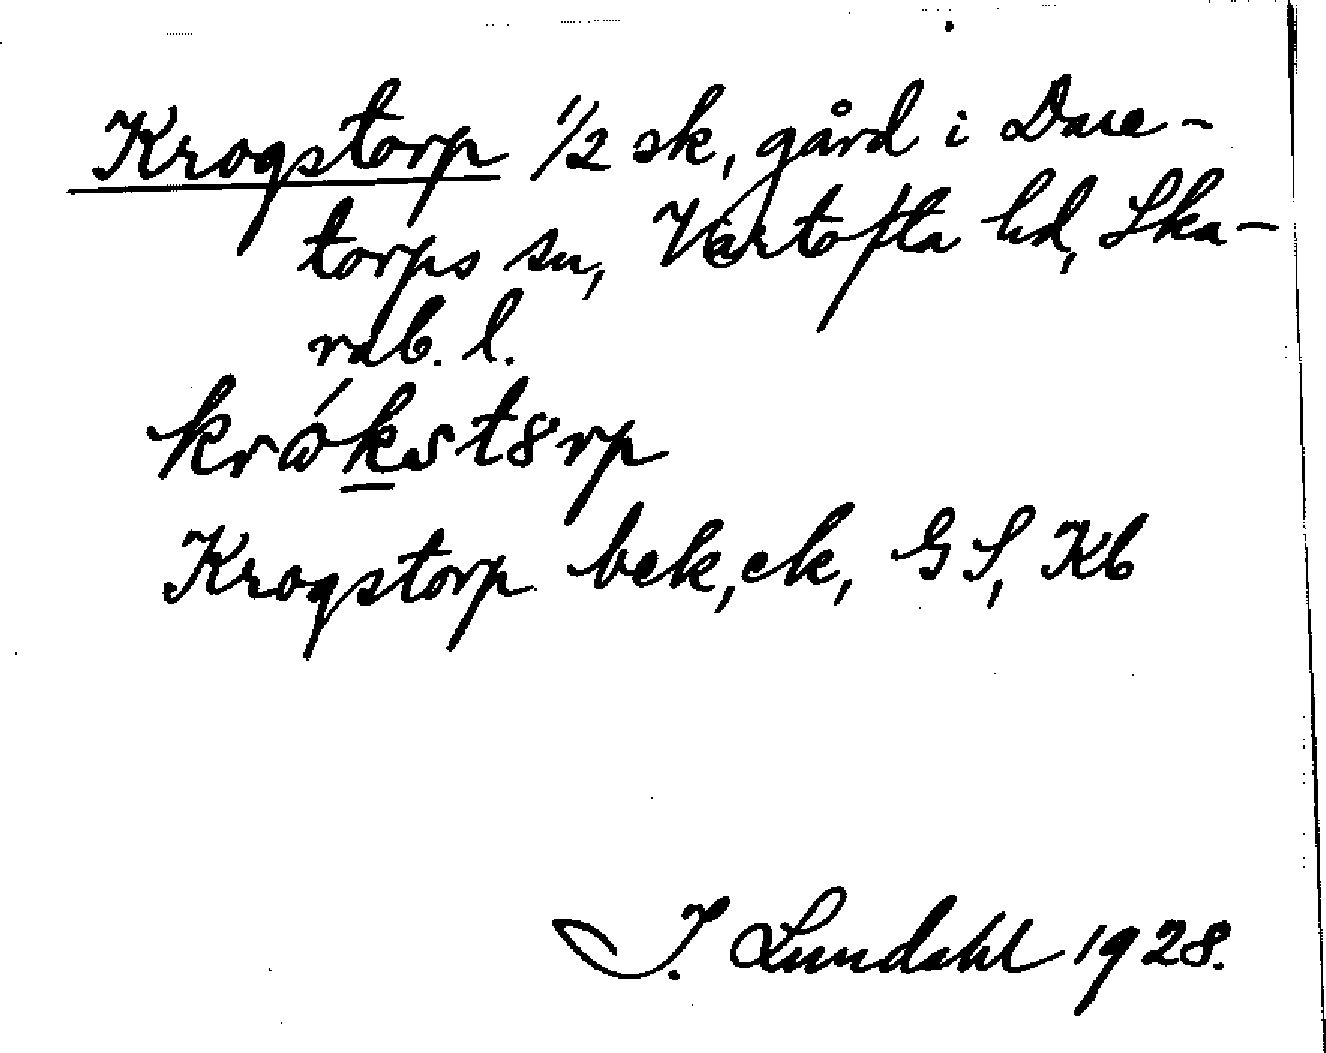 Krogstorp 1/2 sk, gård i Dare-
torps sn, Vartofta hd, Ska-
rab. l.
krɷ́kstȣrp
Krogstorp bek, ek, GS, Kb
I. Lundahl 1928.